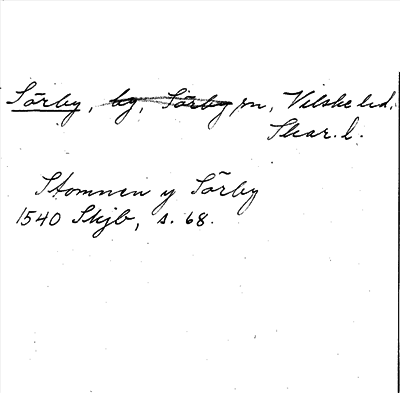 Sörby, by, Sörby sn, Vilske hd,
Skar. l.
Stomnen y Sörby
1540 Skjb, s. 68.